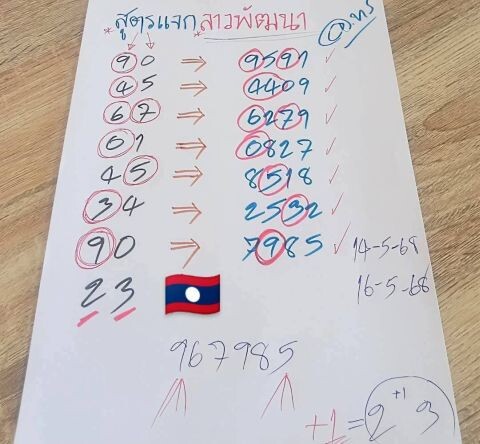 *สูตรแจก *ลาวพัฒนา
90 ⇒ 9591 ✓
45 ⇒ 4409 ✓
67 ⇒ 6279 ✓
61 ⇒ 0827 ✓
45 ⇒ 8518 ✓
34 ⇒ 2532 ✓
90 ⇒ 7985 ✓ 14-5-68
23 16-5-68
967985
+1 = 2 +1 3